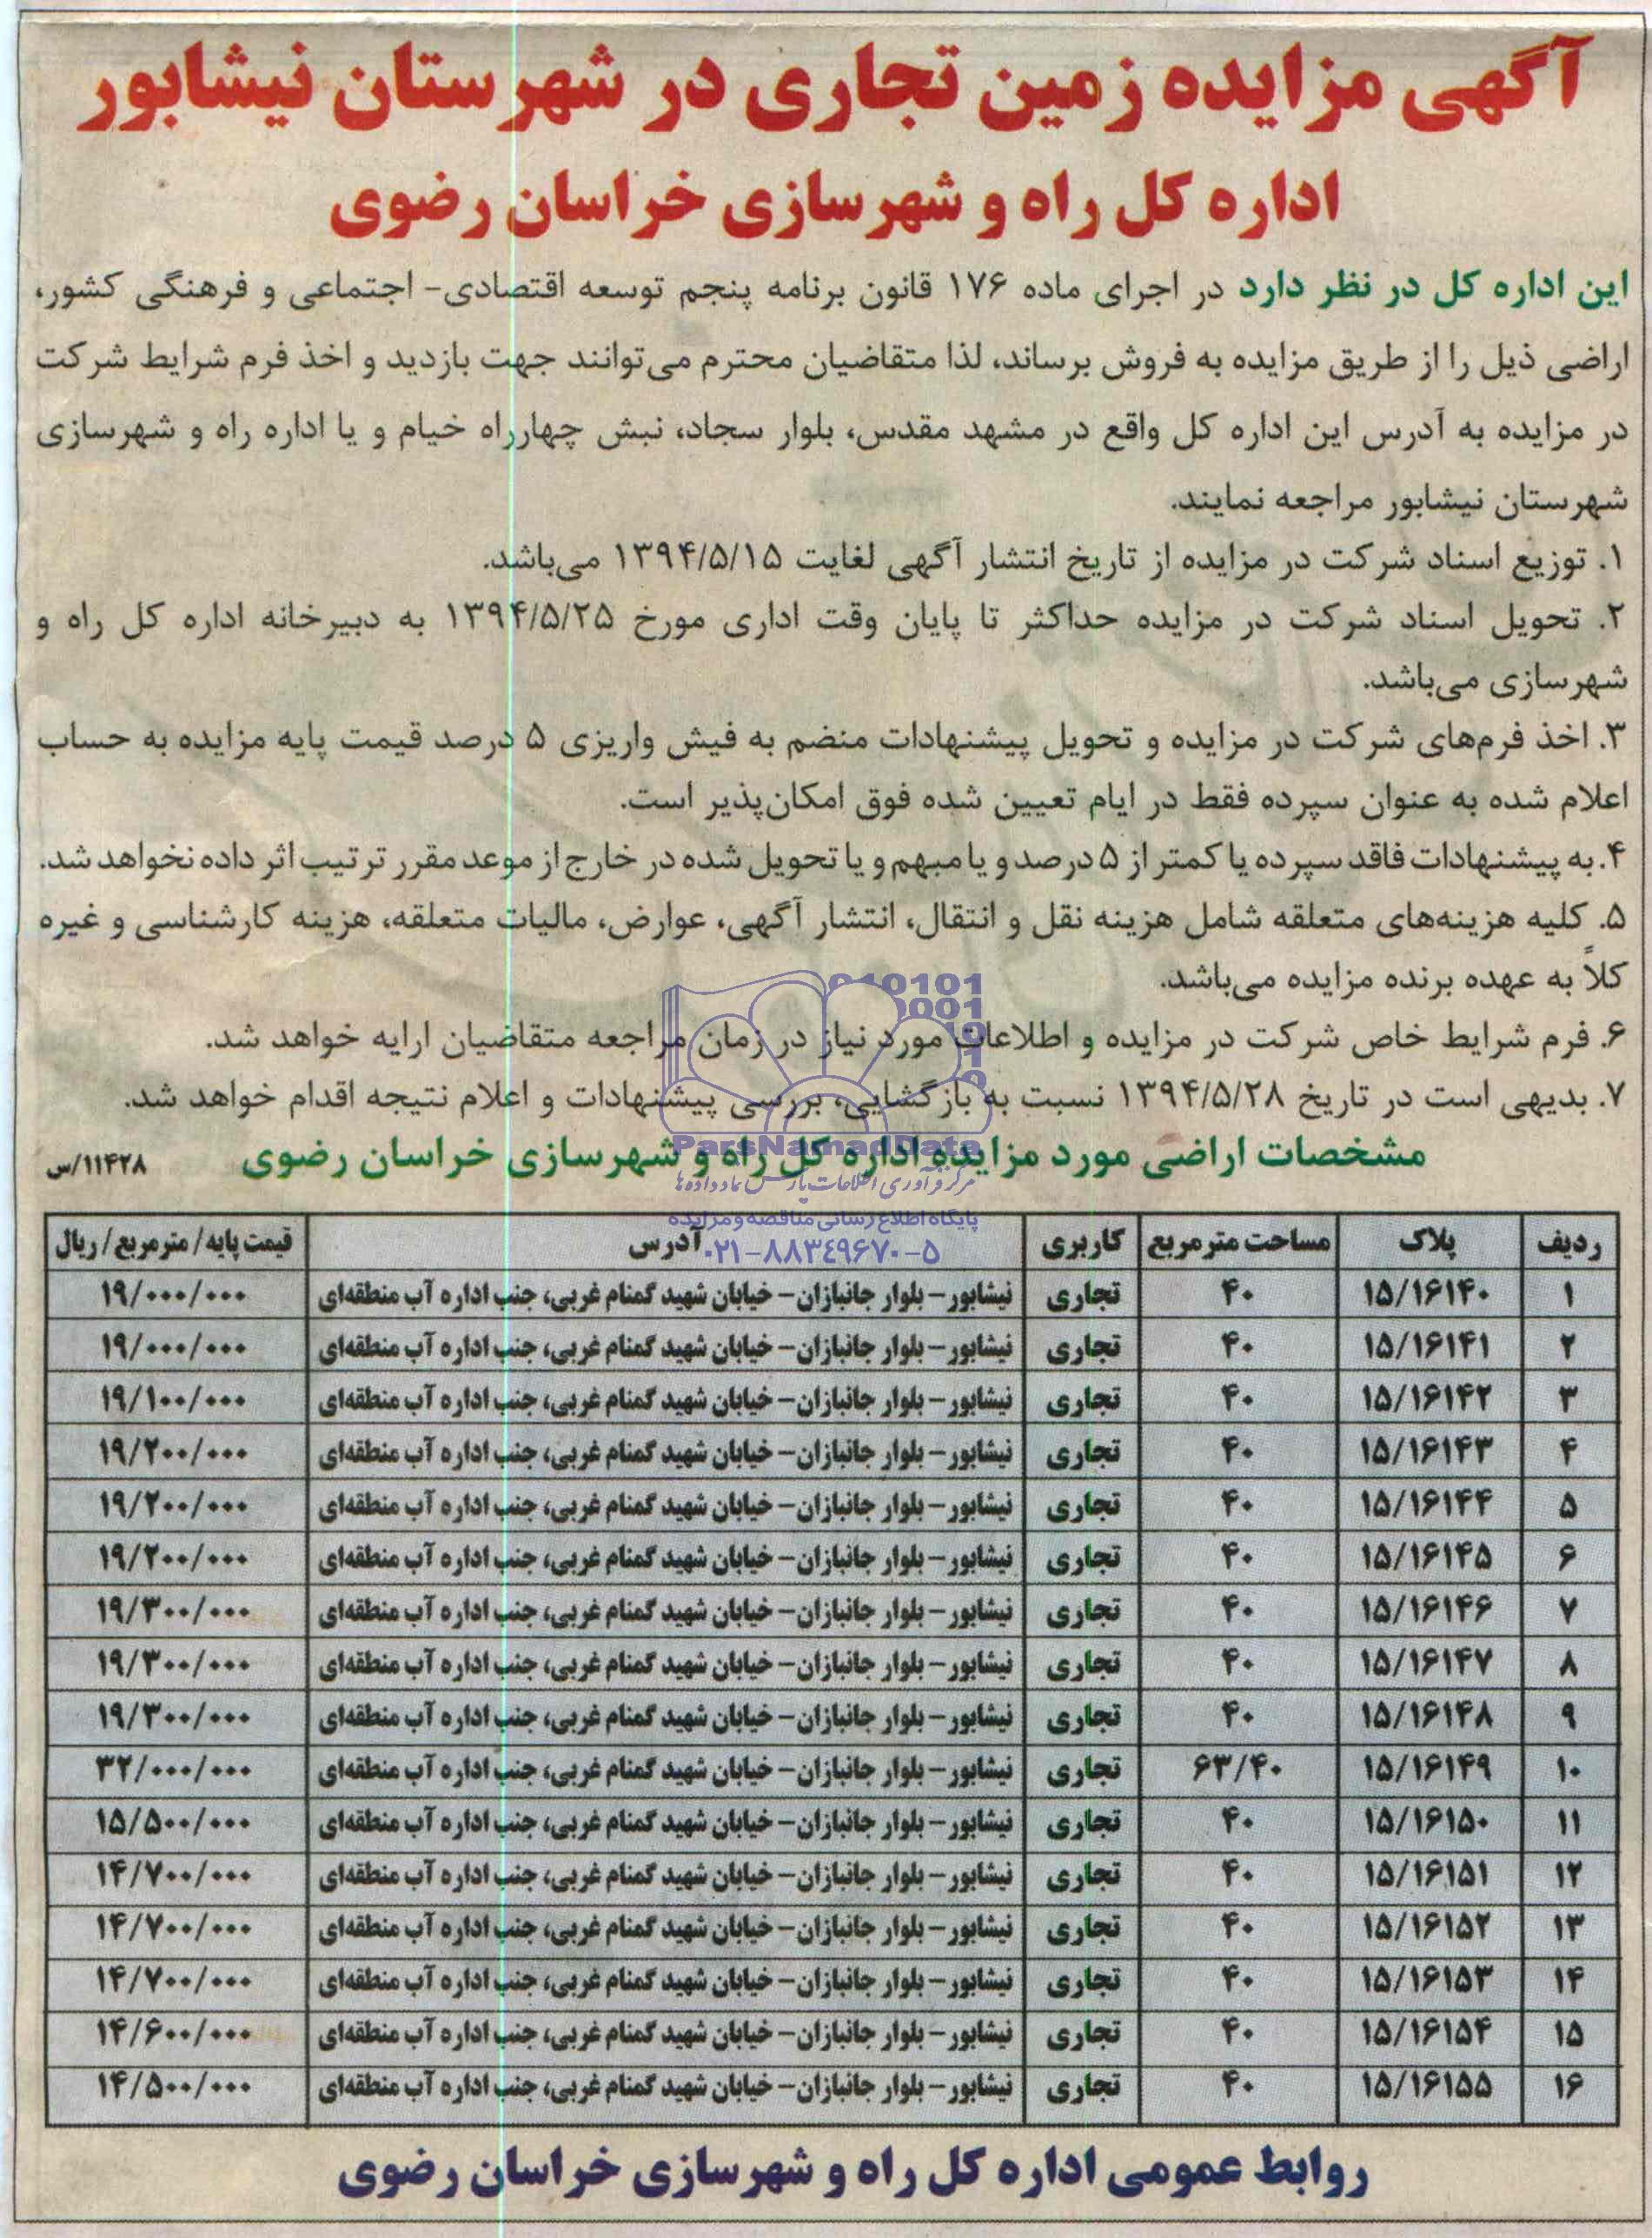 آگهی مزایده زمین تجاری در شهرستان نیشابور
اداره کل راه و شهرسازی خراسان رضوی
این اداره کل در نظر دارد در اجرای ماده ۱۷۶ قانون برنامه پنجم توسعه اقتصادی- اجتماعی و فرهنگی کشور،
اراضی ذیل را از طریق مزایده به فروش برساند، لذا متقاضیان محترم می‌توانند جهت بازدید و اخذ فرم شرایط شرکت
در مزایده به آدرس این اداره کل واقع در مشهد مقدس، بلوار سجاد، نبش چهارراه خیام و یا اداره راه و شهرسازی
شهرستان نیشابور مراجعه نمایند.
۱. توزیع اسناد شرکت در مزایده از تاریخ انتشار آگهی لغایت ۱۳۹۴/۵/۱۵ می‌باشد.
۲. تحویل اسناد شرکت در مزایده حداکثر تا پایان وقت اداری مورخ ۱۳۹۴/۵/۲۵ به دبیرخانه اداره کل راه و
شهرسازی می‌باشد.
۳. اخذ فرم‌های شرکت در مزایده و تحویل پیشنهادات منضم به فیش واریزی ۵ درصد قیمت پایه مزایده به حساب
اعلام شده به عنوان سپرده فقط در ایام تعیین شده فوق امکان‌پذیر است.
۴. به پیشنهادات فاقد سپرده یا کمتر از ۵ درصد و یا مبهم و یا تحویل شده در خارج از موعد مقرر ترتیب اثر داده نخواهد شد.
۵. کلیه هزینه‌های متعلقه شامل هزینه نقل و انتقال، انتشار آگهی، عوارض، مالیات متعلقه، هزینه کارشناسی و غیره
کلاً به عهده برنده مزایده می‌باشد.
۶. فرم شرایط خاص شرکت در مزایده و اطلاعات مورد نیاز در زمان مراجعه متقاضیان ارایه خواهد شد.
۷. بدیهی است در تاریخ ۱۳۹۴/۵/۲۸ نسبت به بازگشایی، بررسی پیشنهادات و اعلام نتیجه اقدام خواهد شد.
مشخصات اراضی مورد مزایده اداره کل راه و شهرسازی خراسان رضوی ۱۱۴۲۸/س
ParsNamadData
مرکز فرآوری اطلاعات پارس نماد داده‌ها
پایگاه اطلاع رسانی مناقصه و مزایده
۰۲۱-۸۸۳۴۹۶۷۰-۵
ردیف پلاک مساحت مترمربع کاربری آدرس قیمت پایه/ مترمربع/ ریال
۱ ۱۵/۱۶۱۴۰ ۴۰ تجاری نیشابور- بلوار جانبازان- خیابان شهید گمنام غربی، جنب اداره آب منطقه‌ای ۱۹/۰۰۰/۰۰۰
۲ ۱۵/۱۶۱۴۱ ۴۰ تجاری نیشابور- بلوار جانبازان- خیابان شهید گمنام غربی، جنب اداره آب منطقه‌ای ۱۹/۰۰۰/۰۰۰
۳ ۱۵/۱۶۱۴۲ ۴۰ تجاری نیشابور- بلوار جانبازان- خیابان شهید گمنام غربی، جنب اداره آب منطقه‌ای ۱۹/۱۰۰/۰۰۰
۴ ۱۵/۱۶۱۴۳ ۴۰ تجاری نیشابور- بلوار جانبازان- خیابان شهید گمنام غربی، جنب اداره آب منطقه‌ای ۱۹/۲۰۰/۰۰۰
۵ ۱۵/۱۶۱۴۴ ۴۰ تجاری نیشابور- بلوار جانبازان- خیابان شهید گمنام غربی، جنب اداره آب منطقه‌ای ۱۹/۲۰۰/۰۰۰
۶ ۱۵/۱۶۱۴۵ ۴۰ تجاری نیشابور- بلوار جانبازان- خیابان شهید گمنام غربی، جنب اداره آب منطقه‌ای ۱۹/۲۰۰/۰۰۰
۷ ۱۵/۱۶۱۴۶ ۴۰ تجاری نیشابور- بلوار جانبازان- خیابان شهید گمنام غربی، جنب اداره آب منطقه‌ای ۱۹/۳۰۰/۰۰۰
۸ ۱۵/۱۶۱۴۷ ۴۰ تجاری نیشابور- بلوار جانبازان- خیابان شهید گمنام غربی، جنب اداره آب منطقه‌ای ۱۹/۳۰۰/۰۰۰
۹ ۱۵/۱۶۱۴۸ ۴۰ تجاری نیشابور- بلوار جانبازان- خیابان شهید گمنام غربی، جنب اداره آب منطقه‌ای ۱۹/۳۰۰/۰۰۰
۱۰ ۱۵/۱۶۱۴۹ ۶۳/۴۰ تجاری نیشابور- بلوار جانبازان- خیابان شهید گمنام غربی، جنب اداره آب منطقه‌ای ۳۲/۰۰۰/۰۰۰
۱۱ ۱۵/۱۶۱۵۰ ۴۰ تجاری نیشابور- بلوار جانبازان- خیابان شهید گمنام غربی، جنب اداره آب منطقه‌ای ۱۵/۵۰۰/۰۰۰
۱۲ ۱۵/۱۶۱۵۱ ۴۰ تجاری نیشابور- بلوار جانبازان- خیابان شهید گمنام غربی، جنب اداره آب منطقه‌ای ۱۴/۷۰۰/۰۰۰
۱۳ ۱۵/۱۶۱۵۲ ۴۰ تجاری نیشابور- بلوار جانبازان- خیابان شهید گمنام غربی، جنب اداره آب منطقه‌ای ۱۴/۷۰۰/۰۰۰
۱۴ ۱۵/۱۶۱۵۳ ۴۰ تجاری نیشابور- بلوار جانبازان- خیابان شهید گمنام غربی، جنب اداره آب منطقه‌ای ۱۴/۷۰۰/۰۰۰
۱۵ ۱۵/۱۶۱۵۴ ۴۰ تجاری نیشابور- بلوار جانبازان- خیابان شهید گمنام غربی، جنب اداره آب منطقه‌ای ۱۴/۶۰۰/۰۰۰
۱۶ ۱۵/۱۶۱۵۵ ۴۰ تجاری نیشابور- بلوار جانبازان- خیابان شهید گمنام غربی، جنب اداره آب منطقه‌ای ۱۴/۵۰۰/۰۰۰
روابط عمومی اداره کل راه و شهرسازی خراسان رضوی